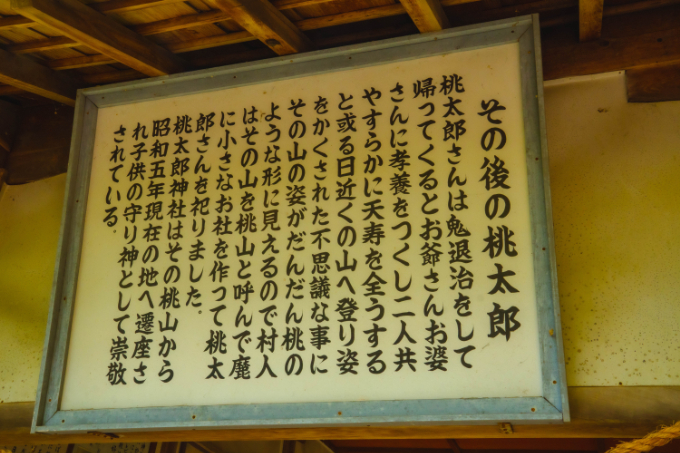 その後の桃太郎
桃太郎さんは鬼退治をして
帰ってくるとお爺さんお婆
さんに孝養をつくし二人共
やすらかに天寿を全うする
と或る日近くの山へ登り姿
をかくされた不思議な事に
その山の姿がだんだん桃の
ような形に見えるので村人
はその山を桃山と呼んで麓
に小さなお社を作って桃太
郎さんを祀りました.
桃太郎神社はその桃山から
昭和五年現在の地へ遷座さ
れ子供の守り神として崇敬
されている.